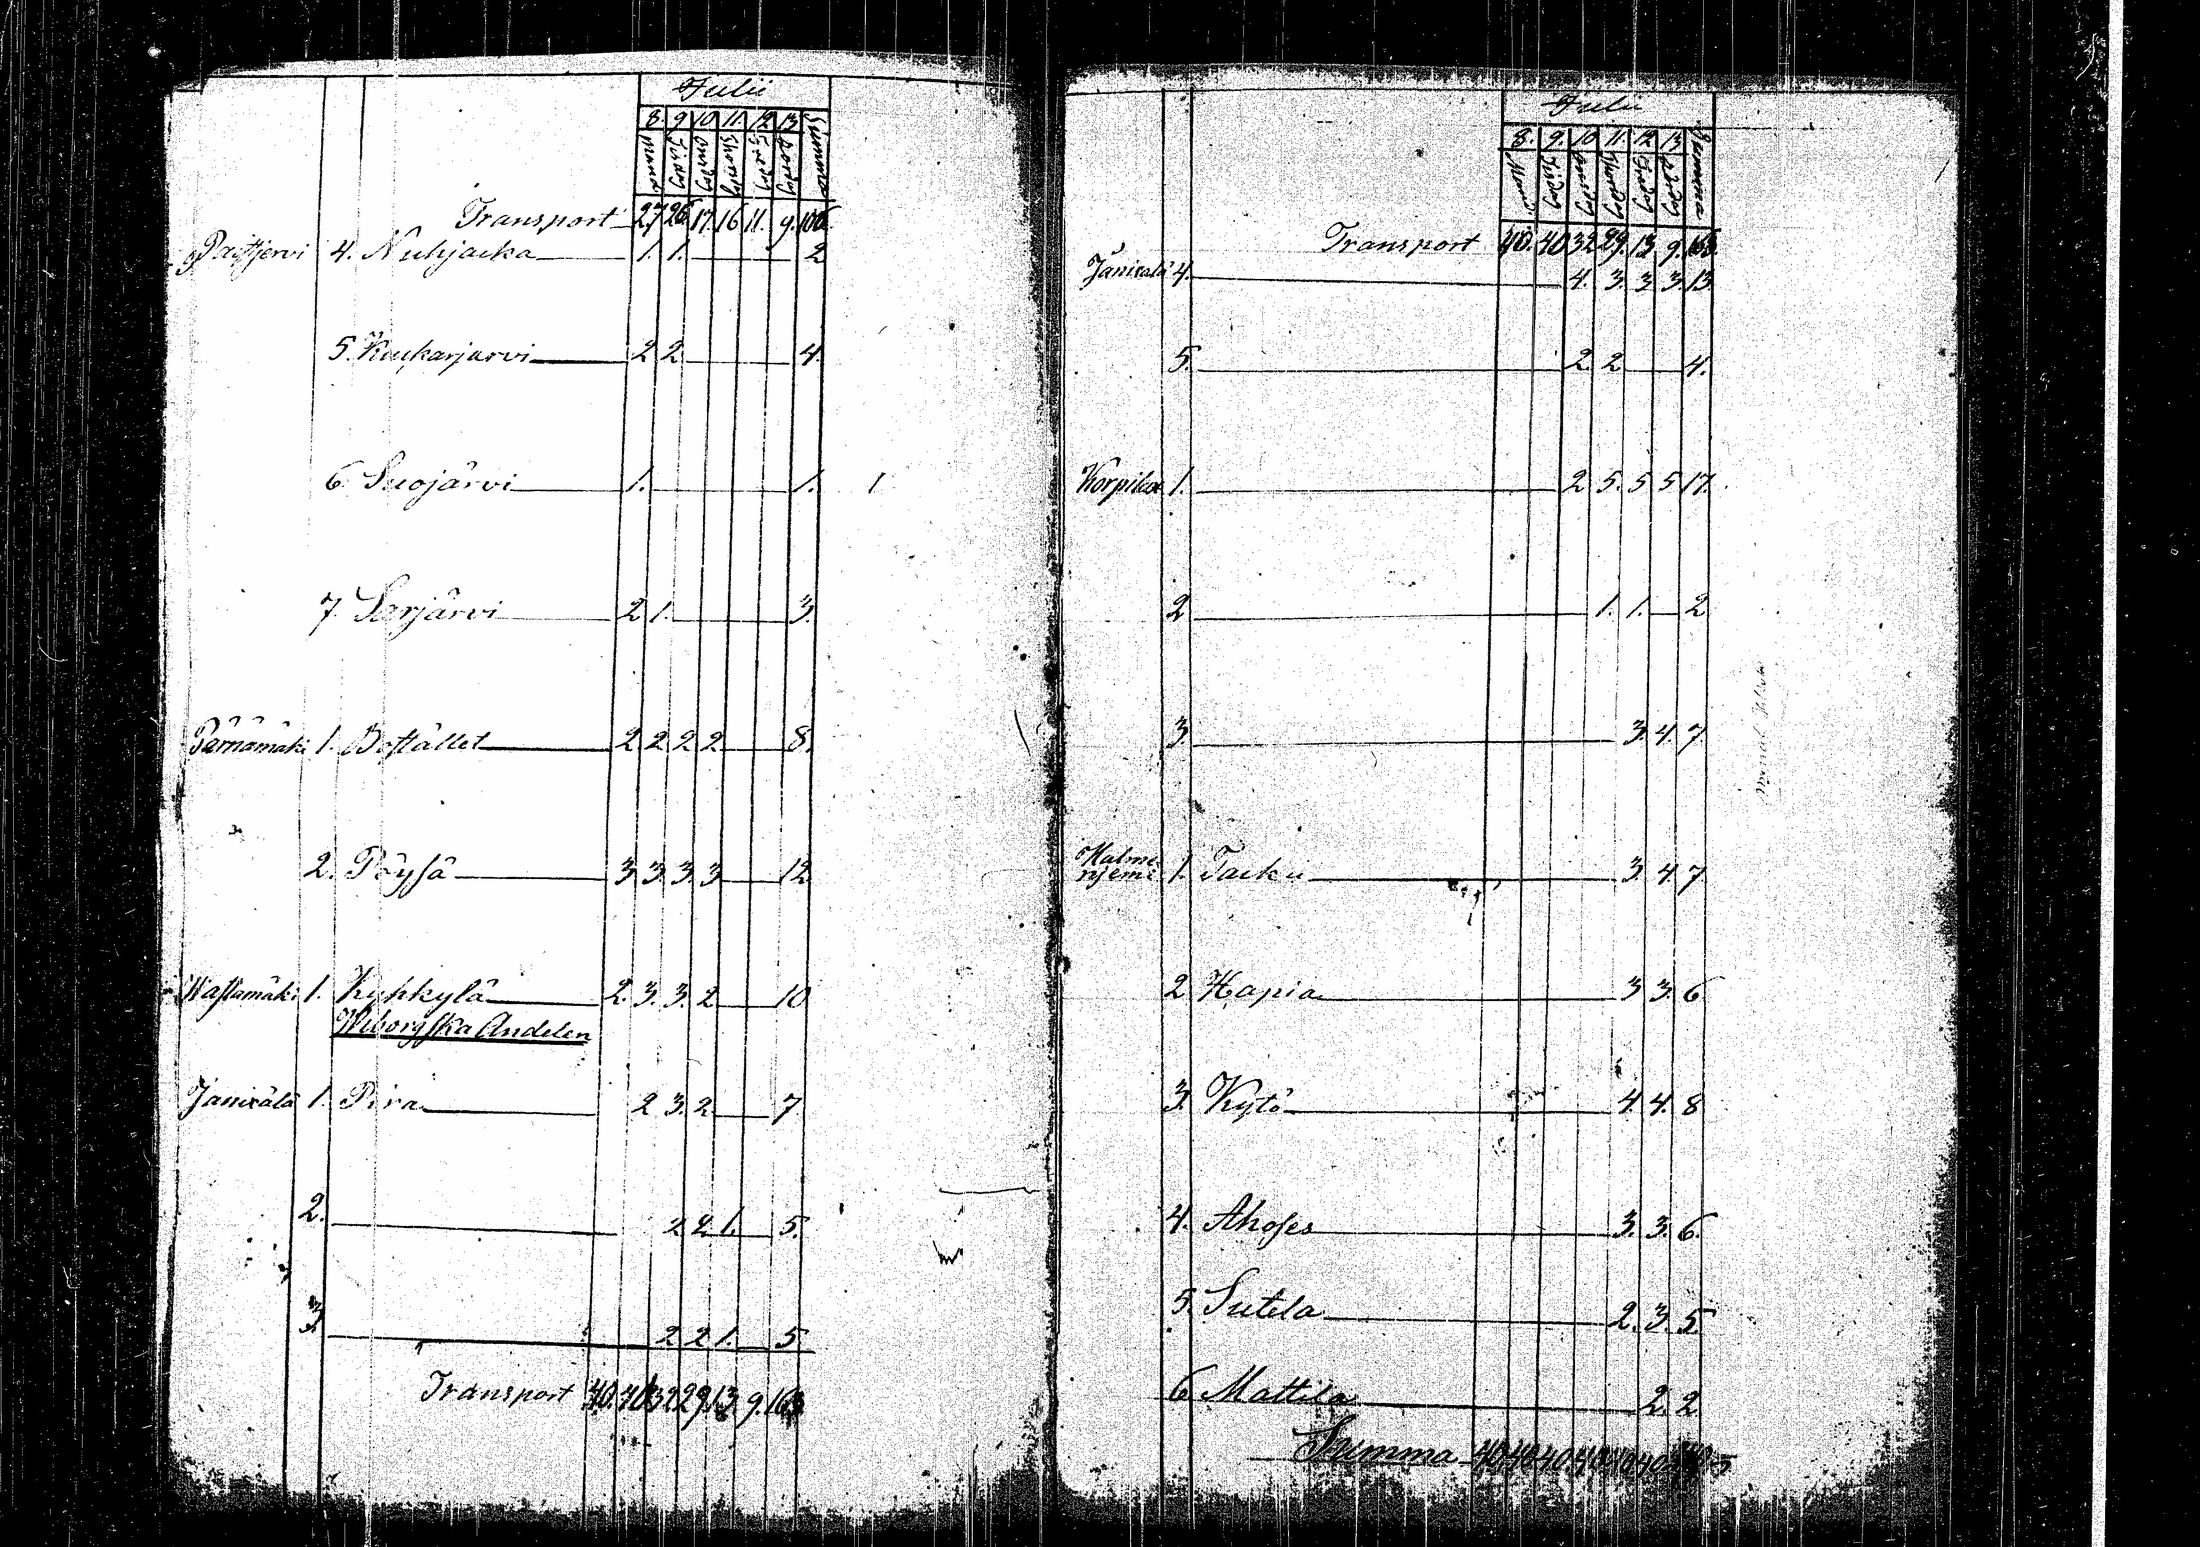 Julii
8. 9. 10. 11. 12. 13. Summa
Transport 27 26 17. 16 11. 9. 106.
Pasjervi 4. Nuhjacka 1. 1. 2
5. Kuukarjarvi 2 2 4.
6 Suojärvi 1. 1.
7. Sarjärvi 2 1. 3.
Pärnämäki 1. Bostället 2 2 2 2 8.
2. Pöysä 3 3 3. 3 12
Wastamäki 1. Kyhkylä 2. 3. 3. 2 10
Wiborgska Andelen
Janisälä 1. Pira 2 3. 2 7
2. 2 2 1. 5.
3. 2 2 1. 5
Transport 40. 40 32 29. 13. 9. 163
Julii
8. 9. 10 11. 12 13 Summa
Transport 40. 40 32 29. 13 9. 163.
Janisalä 4. 4. 3. 3 3. 13.
5. 2. 2 4.
Korpilax 1. 2 5. 5 5 17.
2 1. 1. 2
3. 3. 4. 7.
Kalmenjemi 1. Tacku 3. 4. 7
2 Hapia 3 3. 6
3. Kytö 4. 4. 8
4. Ahoses 3. 3. 6.
5. Sutela 2. 3. 5.
6 Mattila 2. 2
Summa 40. 40 40. 40 40 40. 240